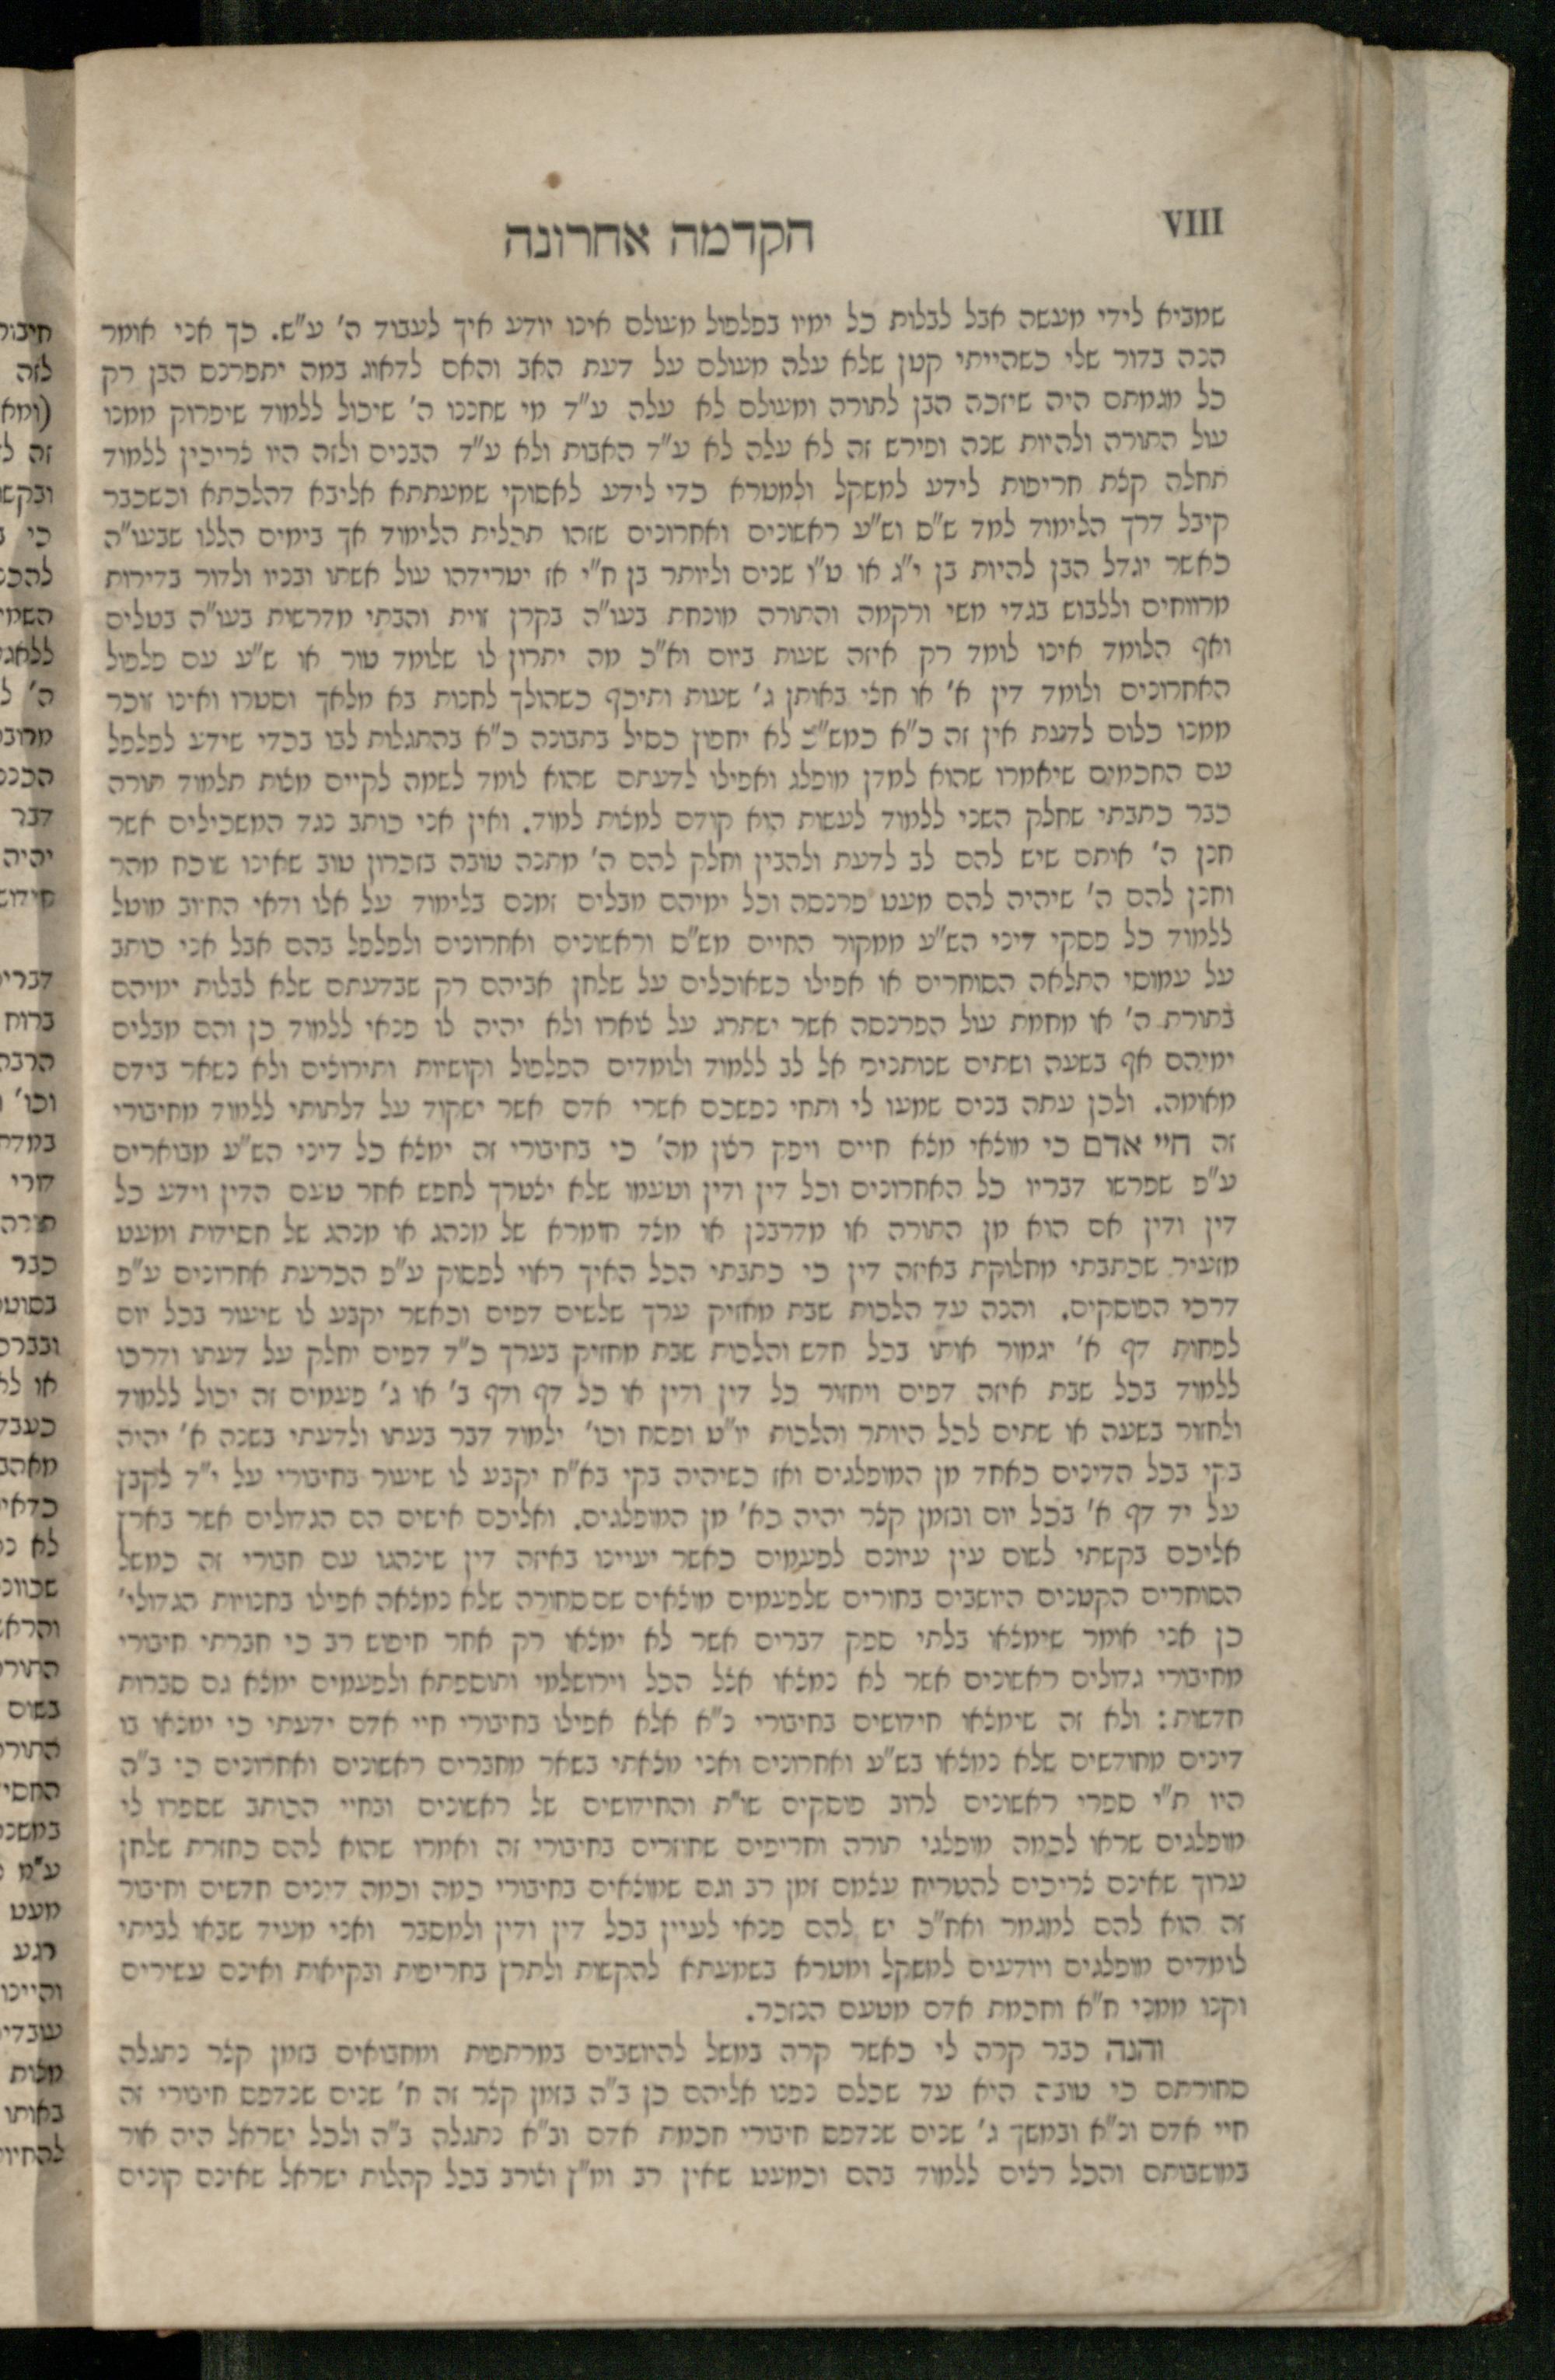 VIII
הקדמה אחרונה
שמביא לידי מעשה אבל לבלות כל ימיו בפלפול מעולם אינו יודע איך לעבוד ה' ע"ש. כך אני אומר
הנה בדור שלי כשהייתי קטן שלא עלה מעולם על דעת האב והאם לדאוג במה יתפרנס הבן רק
כל מגמתם היה שיזכה הבן לתורה ומעולם לא עלה ע"ד מי שחננו ה' שיכול ללמוד שיפרוק ממנו
עול התורה ולהיות שנה ופירש זה לא עלה לא ע"ד האבות ולא ע"ד הבנים ולזה היו צריכין ללמוד
תחלה קצת חריפות לידע למשקל ולמטרא כדי לידע לאסוקי שמעתתא אליבא דהלכתא וכשכבר
קיבל דרך הלימוד למד ש"ס וש"ע ראשונים ואחרונים שזהו תכלית הלימוד אך בימים הללו שבעו"ה
כאשר יגדל הבן להיות בן י"ג או ט"ו שנים וליותר בן ח"י אז יטרידהו עול אשתו ובניו ולדור בדירות
מרווחים וללבוש בגדי משי ורקמה והתורה מונחת בעו"ה בקרן זוית והבתי מדרשות בעו"ה בטלים
ואף הלומד אינו לומד רק איזה שעות ביום וא"כ מה יתרון לו שלומד טור או ש"ע עם פלפול
האחרונים ולומד דין א' או חצי באותן ג' שעות ותיכף כשהולך לחנות בא מלאך וסטרו ואינו זוכר
ממנו כלום לדעת אין זה כ"א כמש"כ לא יחפוץ כסיל בתבונה כ"א בהתגלות לבו בכדי שידע לפלפל
עם החכמים שיאמרו שהוא למדן מופלג ואפילו לדעתם שהוא לומד לשמה לקיים מצות תלמוד תורה
כבר כתבתי שחלק השני ללמוד לעשות הוא קודם למצות למוד. ואין אני כותב נגד המשכילים אשר
חנן ה' אותם שיש להם לב לדעת ולהבין וחלק להם ה' מתנה טובה בזכרון טוב שאינו שוכח מהר
וחנן להם ה' שיהיה להם מעט פרנסה וכל ימיהם מבלים זמנם בלימוד על אלו ודאי החיוב מוטל
ללמוד כל פסקי דיני הש"ע ממקור החיים מש"ס וראשונים ואחרונים ולפלפל בהם אבל אני כותב
על עמוסי התלאה הסוחרים או אפילו כשאוכלים על שלחן אביהם רק שבדעתם שלא לבלות ימיהם
בתורת ה' או מחמת עול הפרנסה אשר ישתרג על צוארו ולא יהיה לו פנאי ללמוד כן והם מבלים
ימיהם אף בשעה ושתים שנותנים אל לב ללמוד ולומדים הפלפול וקושיות ותירוצים ולא נשאר בידם
מאומה. ולכן עתה בנים שמעו לי ותחי נפשכם אשרי אדם אשר ישקוד על דלתותי ללמוד מחיבורי
זה חיי אדם כי מוצאי מצא חיים ויפק רצון מה' כי בחיבורי זה ימצא כל דיני הש"ע מבוארים
ע"פ שפרשו דבריו כל האחרונים וכל דין ודין וטעמו שלא יצטרך לחפש אחר טעם הדין וידע כל
דין ודין אם הוא מן התורה או מדרבנן או מצד חומרא של מנהג או מנהג של חסידות ומעט
מזעיר שכתבתי מחלוקת באיזה דין כי כתבתי הכל האיך ראוי לפסוק ע"פ הכרעת אחרונים ע"פ
דרכי הפוסקים. והנה עד הלכות שבת מחזיק ערך שלשים דפים וכאשר יקבע לו שיעור בכל יום
לפחות דף א' יגמור אותו בכל חדש והלכות שבת מחזיק בערך כ"ד דפים יחלק על דעתו ודרכו
ללמוד בכל שבת איזה דפים ויחזור כל דין ודין או כל דף ודף ב' או ג' פעמים זה יכול ללמוד
ולחזור בשעה או שתים לכל היותר והלכות יו"ט ופסח וכו' ילמוד דבר בעתו ולדעתי בשנה א' יהיה
בקי בכל הדינים כאחד מן המופלגים ואז כשיהיה בקי בא"ח יקבע לו שיעור בחיבורי על י"ד לקבץ
על יד דף א' בכל יום ובזמן קצר יהיה כא' מן המופלגים. ואליכם אישים הם הגדולים אשר בארץ
אליכם בקשתי לשום עין עיונם לפעמים כאשר יעיינו באיזה דין שינהגו עם חבורי זה כמשל
הסוחרים הקטנים היושבים בחורים שלפעמים מוצאים שם סחורה שלא נמצאה אפילו בחנויות הגדולי'
כן אני אומר שימצאו בלתי ספק דברים אשר לא ימצאו רק אחר חיפוש רב כי חברתי חיבורי
מחיבורי גדולים ראשונים אשר לא נמצאו אצל הכל וירושלמי ותוספתא ולפעמים ימצא גם סברות
חדשות: ולא זה שימצאו חידושים בחיבורי נ"א אלא אפילו בחיבורי חיי אדם ידעתי כי ימצאו בו
דינים מחודשים שלא נמצאו בש"ע ואחרונים ואני מצאתי בשאר מחברים ראשונים ואחרונים כי ב"ה
היו ת"י ספרי ראשונים לרוב פוסקים שו"ת והחידושים של ראשונים ובחיי הכותב שספרו לי
מופלגים שראו לכמה מופלגי תורה וחריפים שחוזרים בחיבורי זה ואמרו שהוא להם כחזרת שלחן
ערוך שאינם צריכים להטריח עצמם זמן רב וגם שמוצאים בחיבורי כמה וכמה דינים חדשים וחיבור
זה הוא להם למגמר ואח"כ יש להם פנאי לעיין בכל דין ודין ולמסבר ואני מעיד שבאו לביתי
לומדים מופלגים ויודעים למשקל ומטרא בשמעתא להקשות ולתרץ בחריפות ובקיאות ואינם עשירים
וקנו ממני ח"א וחכמת אדם מטעם הנזכר.
והנה כבר קרה לי כאשר קרה במשל להיושבים במרתפות ומחבואים בזמן קצר נתגלה
סחורתם כי טובה היא עד שכלם נפנו אליהם כן ב"ה בזמן קצר זה ח' שנים שנדפס חיבורי זה
חיי אדם ונ"א ובמשך ג' שנים שנדפס חיבורי חכמת אדם וב"א נתגלה ב"ה ולכל ישראל היה אור
במושבותם והכל רצים ללמוד בהם וכמעט שאין רב ומ"ץ וצורב בכל קהלות ישראל שאינם קונים